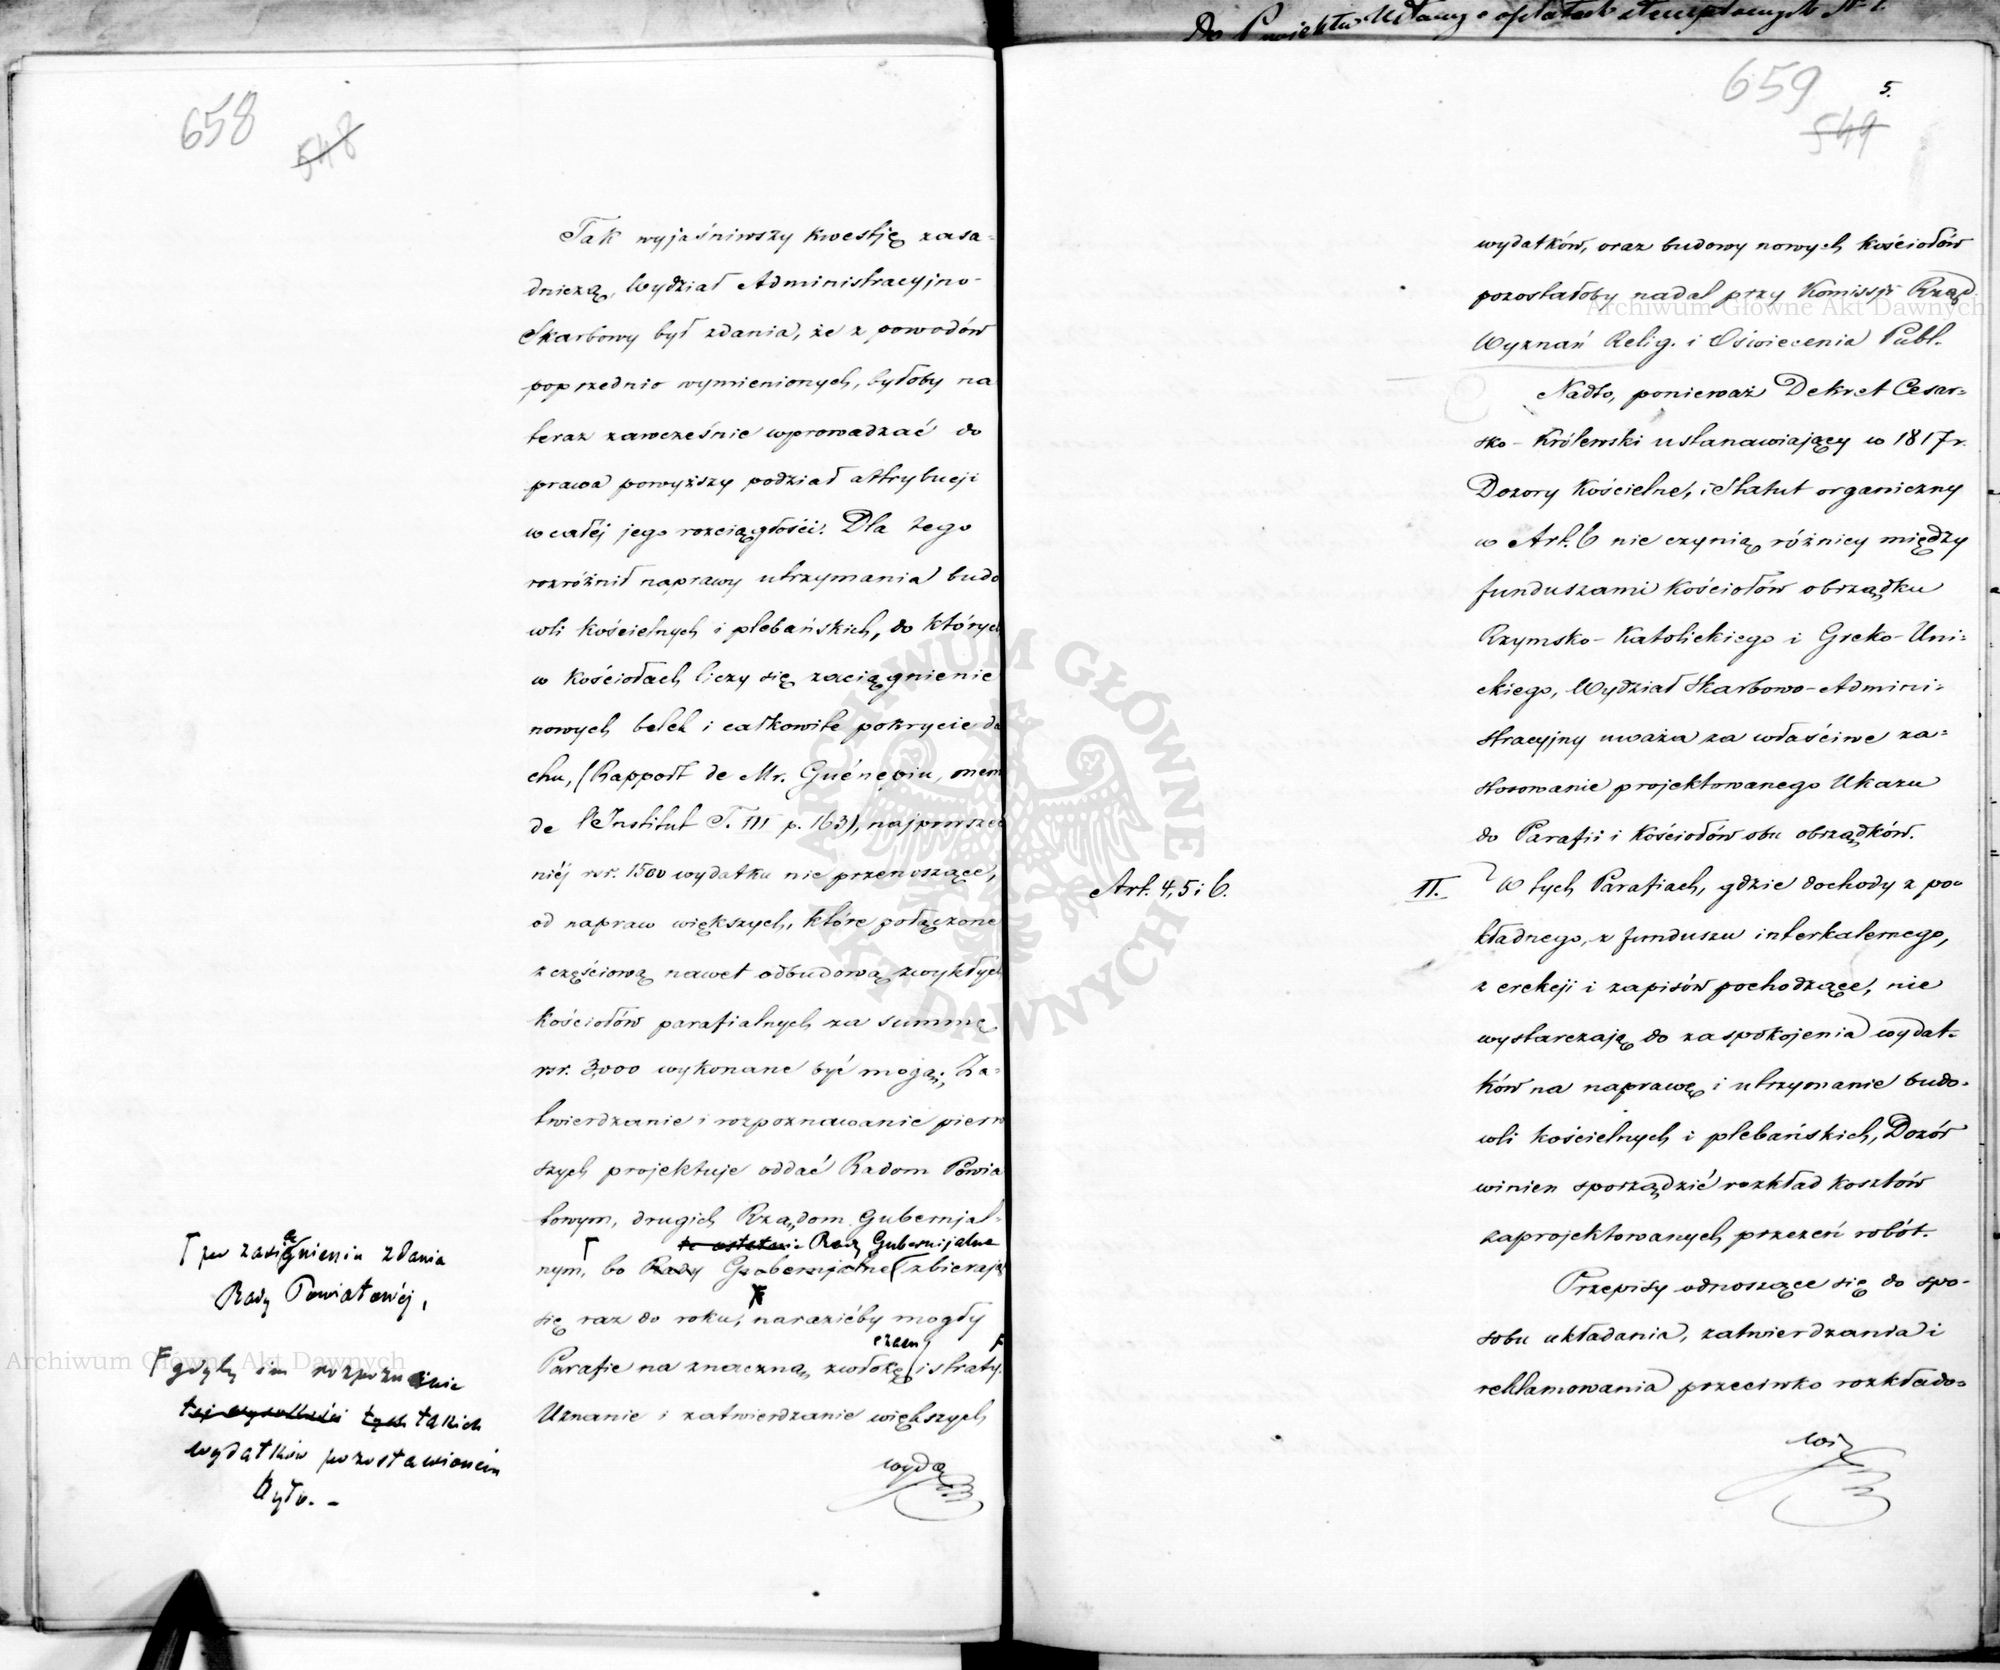 658
548
Tak wyjaśniwszy kwestję zasa-
dniczą, Wydział Administracyjno-
Skarbowy był zdania, że z powodów
poprzednio wymienionych, byłoby na
teraz zawcześnie wprowadzać do
prawa powyższy podział attrybucji
w całéj jego rozciągłości. Dla tego
rozróżnił naprawy utrzymania budo
wli kościelnych i plebańskich, do których
w Kościołach liczy się zaciągnienie
nowych belek i całkowite pokrycie da
chu, (Rapport de Mr. Guénepin, mem
de l'Institut T. III p. 163), najpowszech
niéj rsr. 1500 wydatku nie przenoszące,
od napraw większych, które połączone
z częściową nawet odbudową zwykłych
Kościołów parafialnych za summę
rsr. 3,000 wykonane być mogą; Za-
twierdzanie i rozpoznawanie pierw
szych projektuje oddać Radom Powia
towym, drugich Rządom Gubernjal-
te ostatnie Rady Gubernijalne
nym, bo Rady Gubernjalne zbierają
się raz do roku, naraziéby mogły
Parafie na znaczną zwłokę i straty.
Uznanie i zatwierdzanie większych
wyda
po zasiągnieniu zdania
Rady Powiatowéj,
F gdyby im rozpoznanie
takich
wydatków pozostawionem
było. -
659
5.
549
wydatków, oraz budowy nowych kościołów
pozostałoby nadal przy Komissji Rząd.
Wyznań Relig. i Oświecenia Publ.
Nadto, ponieważ Dekret Cesar-
sko-Królewski ustanawiający w 1817 r.
Dozory Kościelne, i Statut organiczny
w Art. 6 nie czynią różnicy między
funduszami Kościołów obrządku
Rzymsko-Katolickiego i Greko-Uni-
ckiego, Wydział Skarbowo-Admini-
stracyjny uważa za właściwe za-
stosowanie projektowanego Ukazu
do Parafii i Kościołów obu obrządków.
Art. 4, 5 i 6.
II. W tych Parafiach, gdzie dochody z po-
kładnego, z funduszu interkalernego,
z erekcji i zapisów pochodzące, nie
wystarczają do zaspokojenia wydat-
ków na naprawę i utrzymanie budo-
wli kościelnych i plebańskich, Dozór
winien sporządzić rozkład kosztów
zaprojektowanych przezeń robót.
Przepisy odnoszące się do spo-
sobu układania, zatwierdzania i
reklamowania przeciwko rozkłado-
wi
Archiwum Główne Akt Dawnych
Archiwum Główne Akt Dawnych
ARCHIWUM GŁÓWNE AKT DAWNYCH